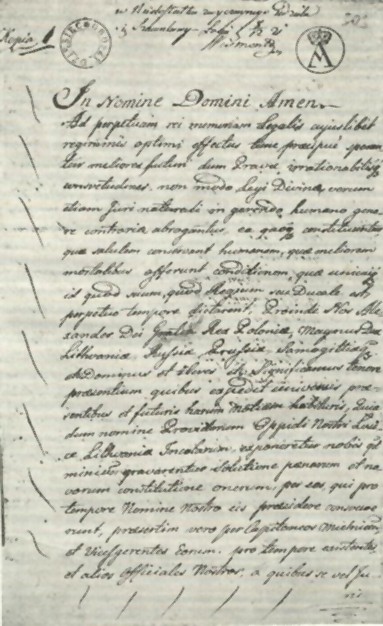 Kopia
In Nomine Domini Amen.
Ad perpetuam rei memoriam Legalis cujuslibet
regiminis optimi effectus tunc præcipue speran
tur meliores futuri dum Pravæ irrationabiles
consvetudines, non modo Legi Divinæ verum
etiam Juri naturali in gerendo humano gene
re contraria abrogantur, ea constituuntur
quæ salutem conservant humanam, quæ meliorem
mortalibus afferunt conditionem, quæ unicuiq
id quod suum, quod Regium seu Ducale est,
perpetuo tempore dictarent. Proinde Nos Ale
xander Dei Gratia Rex Poloniæ, Magnus Dux
Lithvaniæ Russiæ Prussiæ, Samogitiæ
Dominus et Hæres Significamus tenore
præsentium quibus expedit universis præ
sentibus et futuris harum notitiam habituris, Quia
dum nomine Oppidi Nostri
Lithvania Incolarum, exponeretur nobis
gravarentur solutione pænarum et no
vorum constitutione onerum, per eos qui pro
tempore Nomine Nostro eis præsidere consueve
runt, præsertim vero per Capitaneos
et Vicesgerentes Eorum, pro tempore existentes,
et alios Officiales Nostros, a quibus se vel